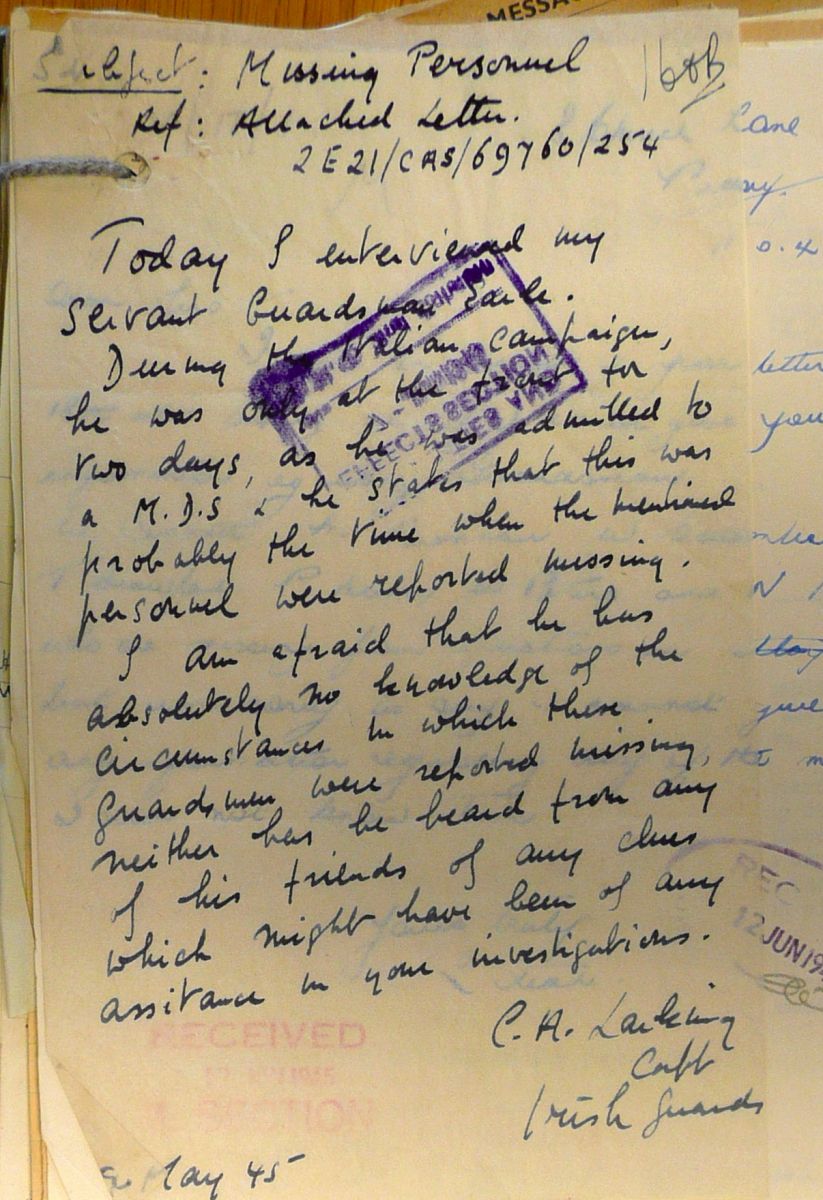 MESSA
Subject: Missing Personnel
168B
Ref: Attached Letter.
2E21/CAS/69760/254
Today I interviewed my
Servant Guardsman Earle.
During the Italian Campaign,
he was only at the front for
two days, as he was admitted to
a M.D.S & he states that this was
probably the time when the mentioned
personnel were reported missing.
I am afraid that he has
absolutely no knowledge of the
circumstances in which these
guardsmen were reported missing,
neither has he heard from any
of his friends of any clues
which might have been of any
assitance in your investigations.
C.A. Larking
Capt
Irish Guards
May 45
EFFECTS SESSION
RECEIVED
SECTION
Lane
letter
you
give
REC
12 JUN 19